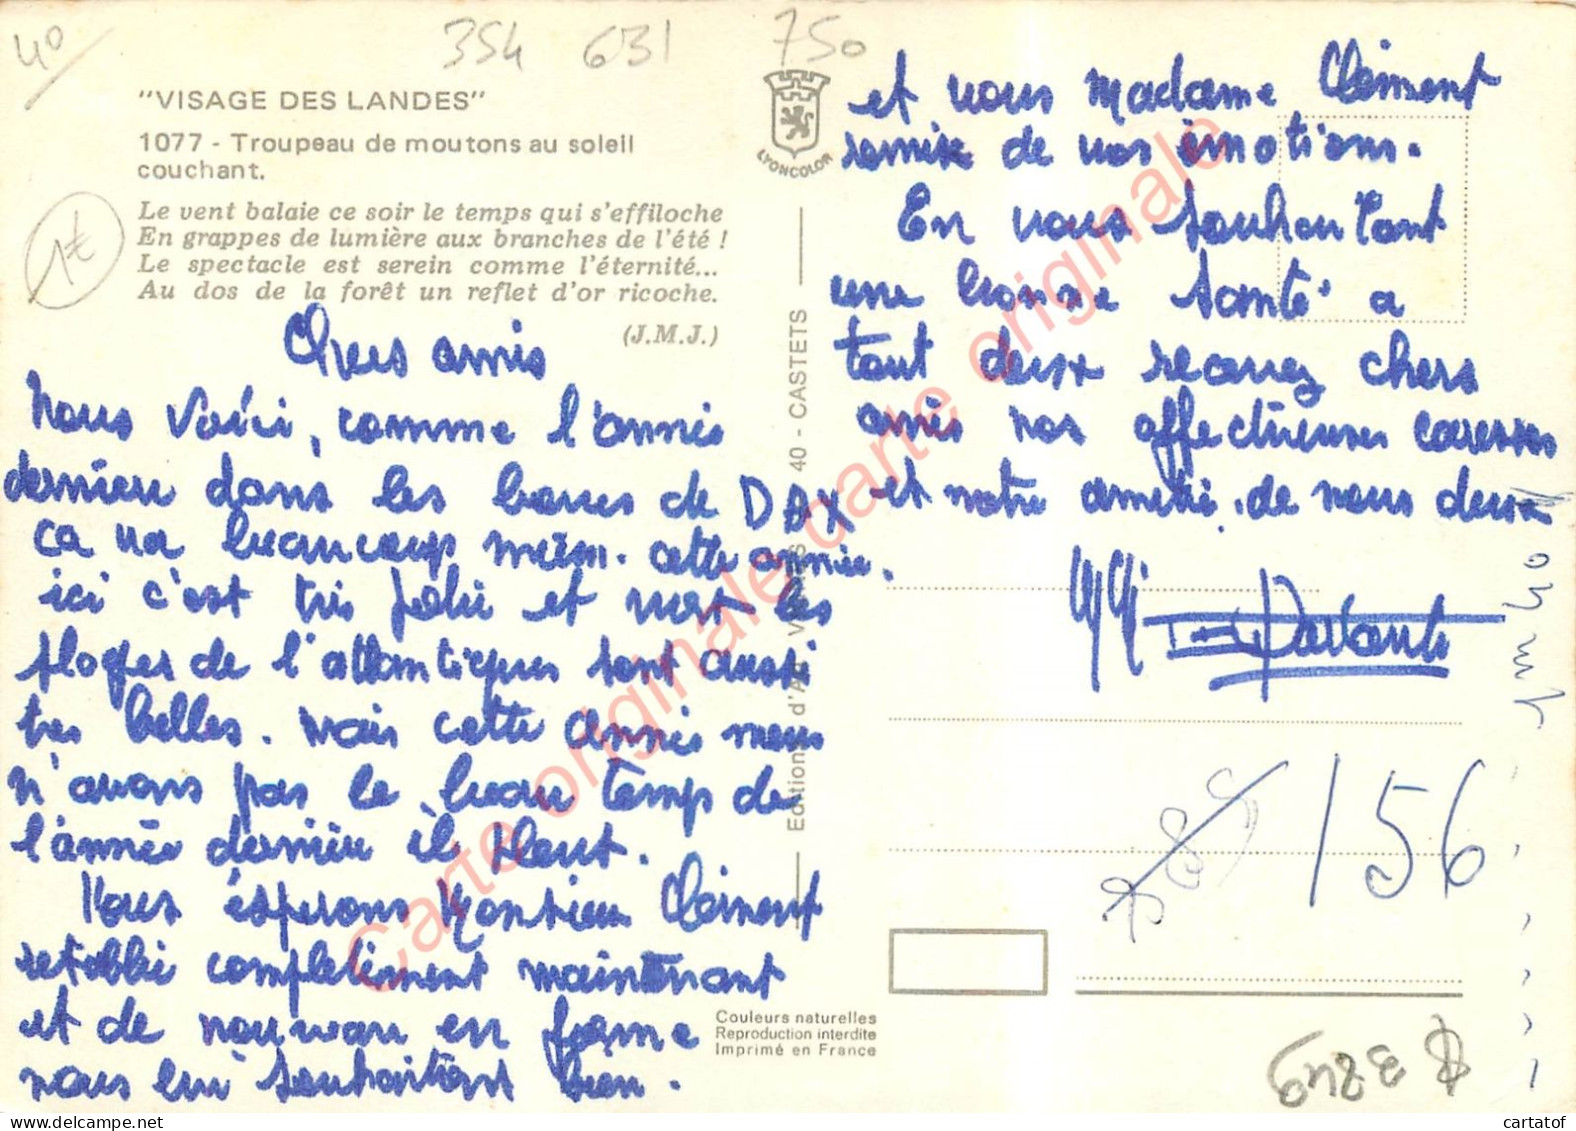 40
354 631 750
"VISAGE DES LANDES"
1077 - Troupeau de moutons au soleil
couchant.
Le vent balaie ce soir le temps qui s'effiloche
En grappes de lumière aux branches de l'été !
Le spectacle est serein comme l'éternité...
Au dos de la forêt un reflet d'or ricoche.
(J.M.J.)
1€
Chers amis
Nous Voici, comme l'année
dernière dans les boues de DAX
ca va beaucoup mieux. cette année.
ici c'est très jolie et vert les
plages de l'attantiques sont aussi
tres belles. mais cette année nous
n'avons pas le beau temps de
l'année dernière il pleut.
Nous éspérons Monsieur Clément
retablie complétement maintenant
et de nouveau en forme
nous lui souhaitons bien.
LYONCOLOR
Editions d'Art 40 - CASTETS
et vous madame Clément
remise de vos émotions.
En vous souhaitant
une bonne santé a
tout deux recevez chers
amis nos affectueuses caresses
et notre amitié de nous deux
156
1m40
3249
Couleurs naturelles
Reproduction interdite
Imprimé en France
Carte originale carte originale
Carte originale
cartatof